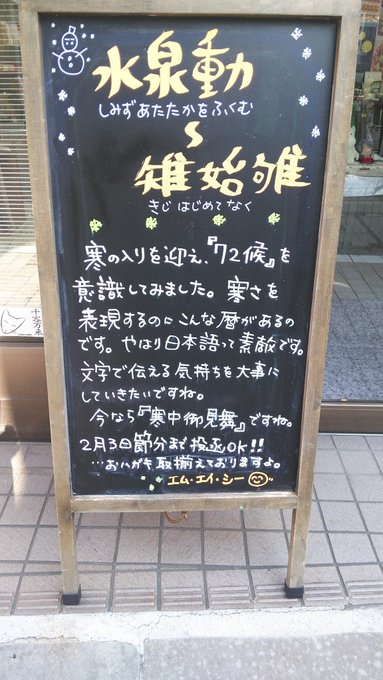 水泉動
しみずあたたかをふくむ
〜
雉始雊
きじ はじめてなく
寒の入りを迎え、『72候』を
意識してみました。寒さを
表現するのにこんな暦があるの
です。やはり日本語って素敵です。
文字で伝える気持ちを大事に
していきたいですね。
今なら『寒中御見舞』ですね。
2月3日節分まで投函OK!!
…おハガキ取揃えておりますよ。
エム・エイ・シー